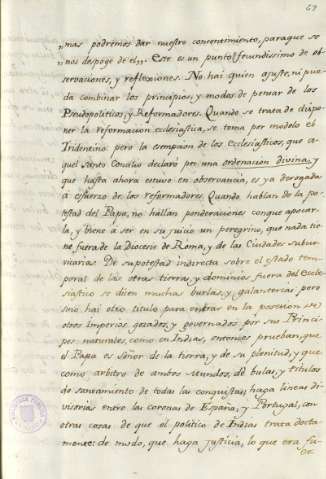 69
„mas podremos dar nuestro consentimiento, para que se
„nos despoge de el„. Este es un punto fecundissimo de ob-
servaciones, y reflexiones. No hai quien ajuste, ni pue-
da combinar los principios, y modos de pensar de los
Pseudopoliticos, y Reformadores. Quando se trata de dispo-
ner la reformacion eclesiastica, se toma por modelo el
Tridentino: pero la exempcion de los Eclesiasticos, que a-
quel Santo Concilio declarò por una ordenacion divina, y
que hasta ahora estuvo en observancia, es ya derogada
à esfuerzo de los reformadores. Quando hablan de la po-
testad del Papa, no hallan ponderaciones con que apocar-
la, y viene à ser en su juicio un peregrino, que nada tie-
ne fuera de la Diocesis de Roma, y de las Ciudades subur-
vicarias. De su potestad indirecta sobre el estado tem-
poral de las otras tierras, y dominios fuera del Ecle-
siastico se dicen muchas burlas, y galanterias; pero
si no hai otro titulo para entrar en la posesion de
otros Imperios, gozados, y governados por sus Princi-
pes naturales, como en Indias, entonces prueban, que
el Papa es Señor de la tierra, y de su plenitud, y que
como arbitro de ambos Mundos, dè bulas, y titulos
de saneamiento de todas las conquistas; haga lineas di-
visorias entre las coronas de España, y Portugal, con
otras cosas de que el politico de Indias trata docta-
mente: de modo, que haga justicia, lo que era fu-